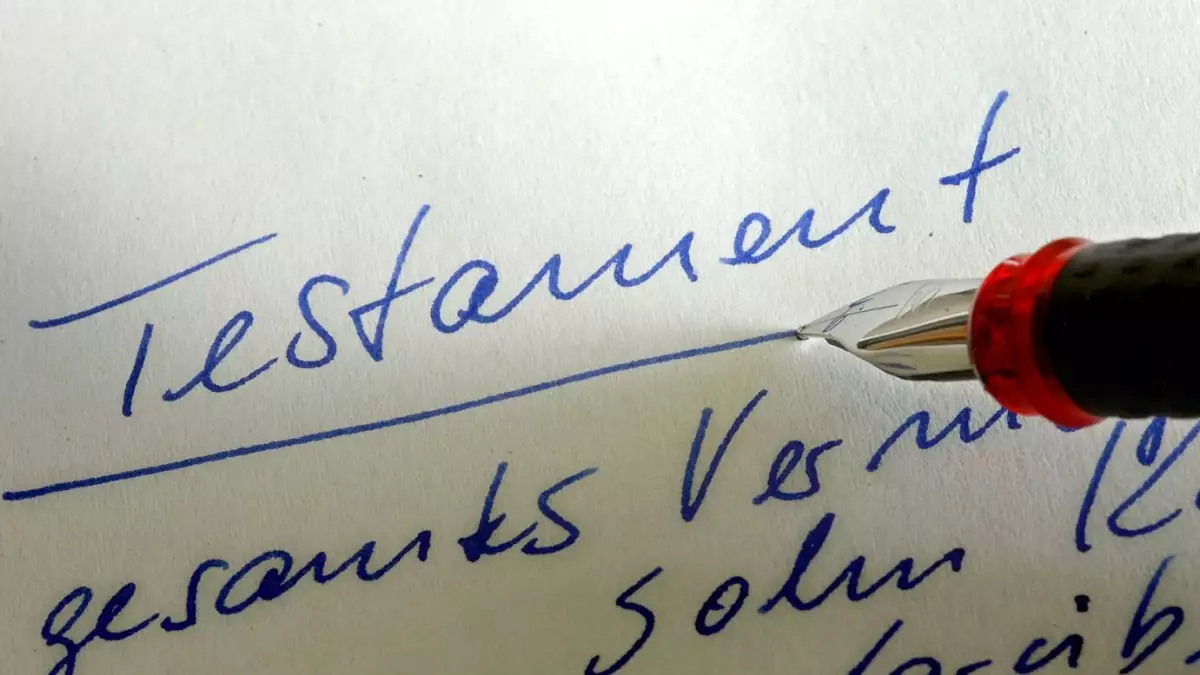 Testament
gesamtes Verm
Sohn